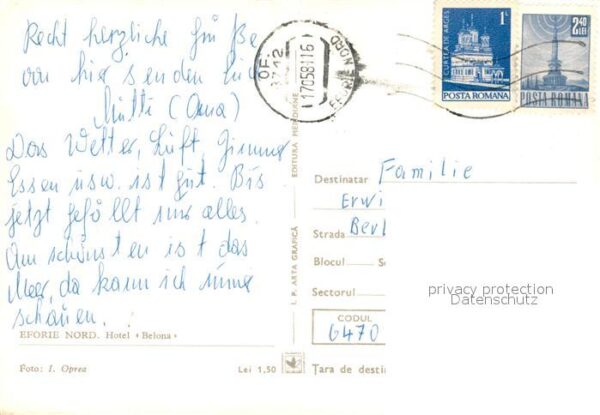 Recht herzliche Grüße
von hier senden Euch
Mutti (Oma)
Das Wetter, Luft, Zimmer
Essen usw. ist gut. Bis
jetzt gefällt mir alles.
Am schönsten ist das
Meer, da kann ich immer
schauen.
EFORIE NORD. Hotel «Belona»
Foto: I. Oprea
Lei 1,50
I. P. ARTA GRAFICĂ
EDITURA MERIDIANE
OF.
17058116
EFORIE NORD
1L
CURTEA DE ARGES
POSTA ROMANA
2,40
LEI
POSTA ROMANA
Destinatar Familie
Erwi
Strada Berl
Blocul
Sectorul
CODUL
6470
Țara de desti
privacy protection
Datenschutz